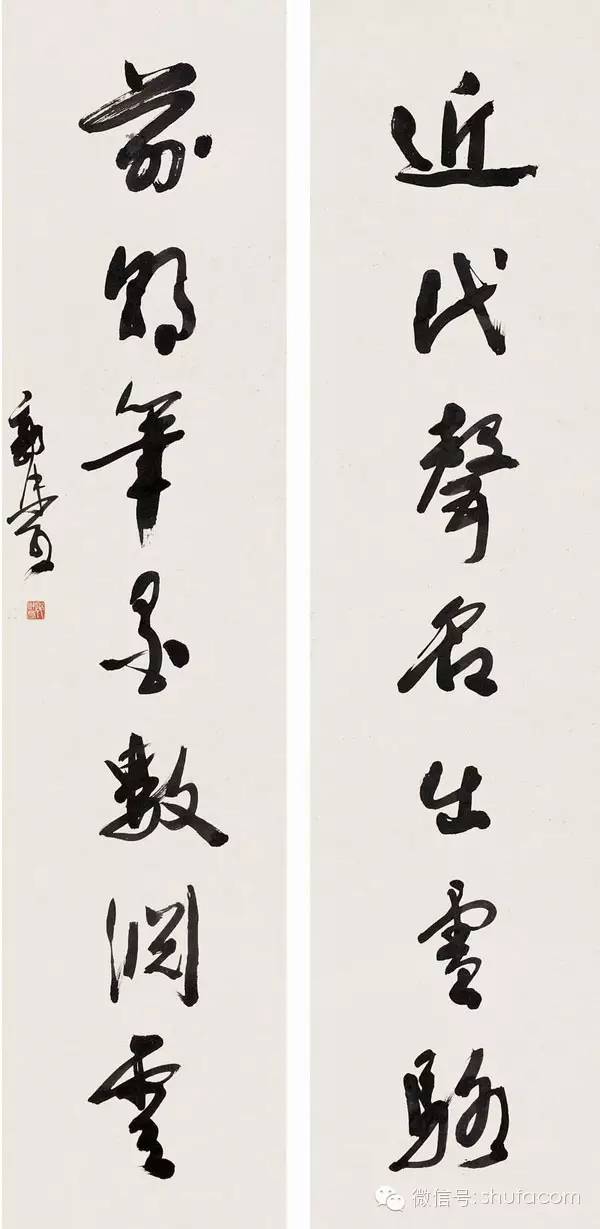 近代聲名出盧駱
前朝筆墨數淵雲
微信号:shufacom